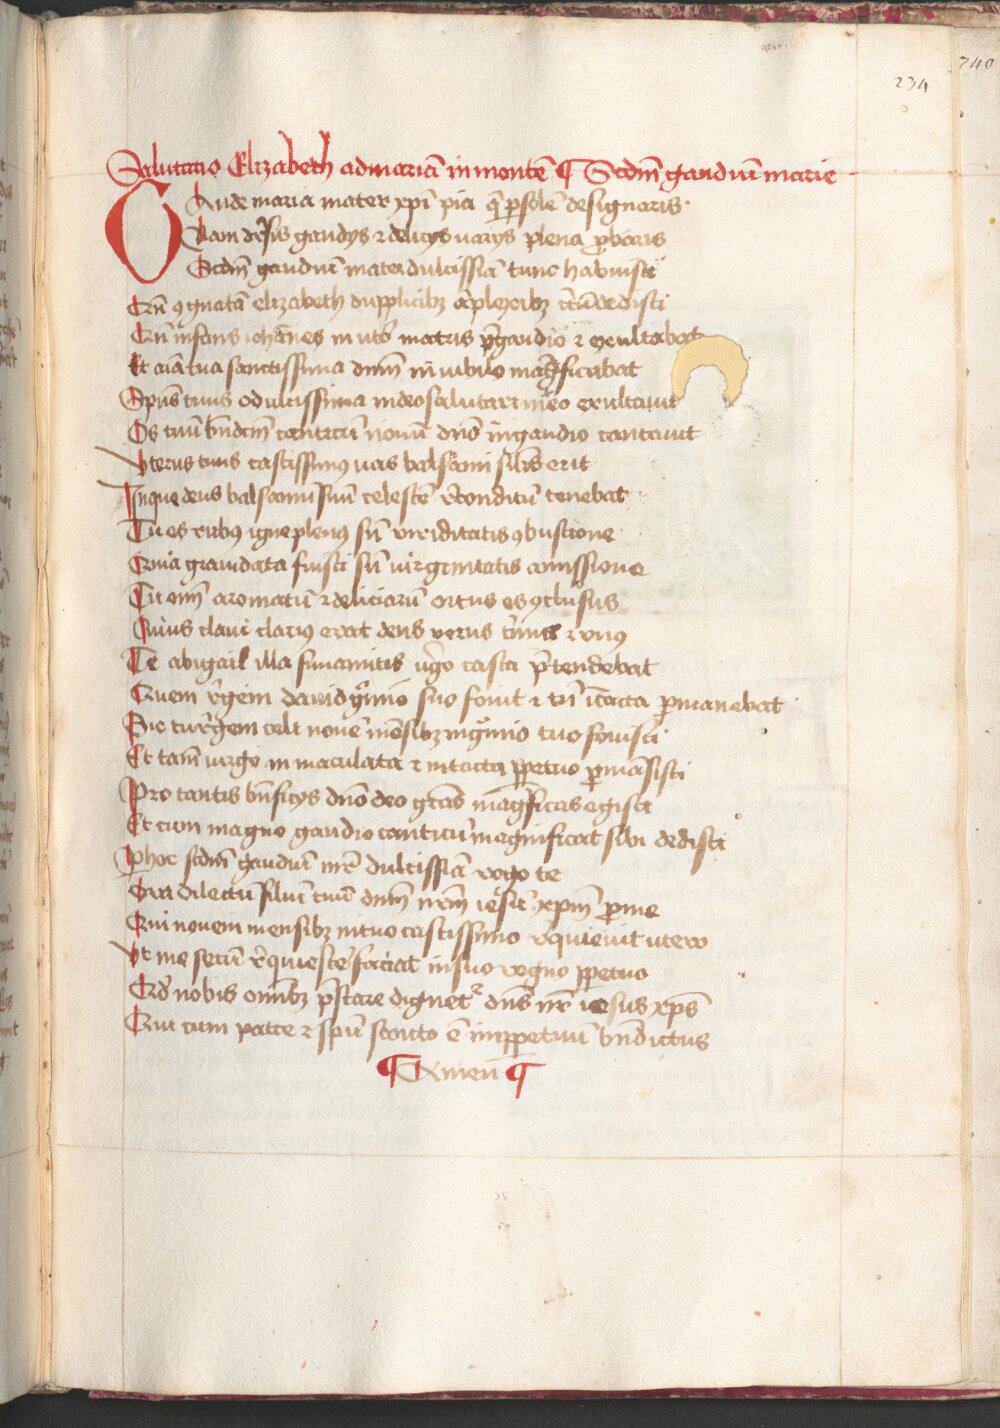 240
234
Salutatio Elizabeth ad mariā in montē ¶ Scd̄m gaudiū marie
Gaude maria mater xp̄i pia q̄ p̱ solē designaris
Nam gaudijs ⁊ delicijs uarijs plena ꝓbaris
Scd̄m gaudiū mater dulcissīa tunc habuisti
Cū ꝯgnatā elizabeth dupplicibꝫ
Cū infans ioh̄nes in ut̓o matris p̄ gaudio ⁊ exultabat
Et aīa tua sanctissima dn̄m in iubilo mag̓ficabat
Sp̄us tuus o dulcissima in deo salutari meo exultauit
Os tuū bn̄dc̄m canticū nouū dn̄o in gaudio cantauit
Uterus tuus castissimꝰ uas balsami sil̄is erit
In que deus balsamū suū celestē r̓conditū tenebat
Tu es rubꝰ igne plenꝰ sn̄ uiriditatis ꝯbustione
Quia grauidata fuisti sn̄ uirginitatis amissione
Tu em̄ aromatū ⁊ deliciarū ortus es ꝯclusus
Cuius claui clariꝰ erat deus uerus t̓nus ⁊ unꝰ
Te abigail illa sunamitis u̓go casta p̄tendebat
Quem r̓gem dauid g̓mio suo fouit ⁊ tn̄ ītacta ꝑmanebat
Sic tu r̓gem celi nouē mēsibꝫ in g̓mio tuo fouisti
Et tam̄ uirgo inmaculata ⁊ intacta ꝑpetuo ꝑmāsisti
Pro tantis bn̄ficijs dn̄o deo gr̄as mag̓ficas egisti
Et cum magno gaudio canticū magnificat sibi dedisti
P̱ hoc scd̄m gaudiū mr̄ dulcissīa rogo te
Ora dilectū filiū tuū dn̄m nr̄m iesū xp̄m ꝑ me
Qui nouem mensibꝫ in tuo castissimo r̓quieuit utero
Ut me secū r̓quiesce̓ faciat in suo regno ꝑpetuo
Qd̓ nobis om̄ibꝫ p̄stare dignet᷑ dn̄s nr̄ iesus xp̄s
Qui cum patre ⁊ sp̄u sancto ē imꝑpetuū bn̄dictus
¶ Amen ¶